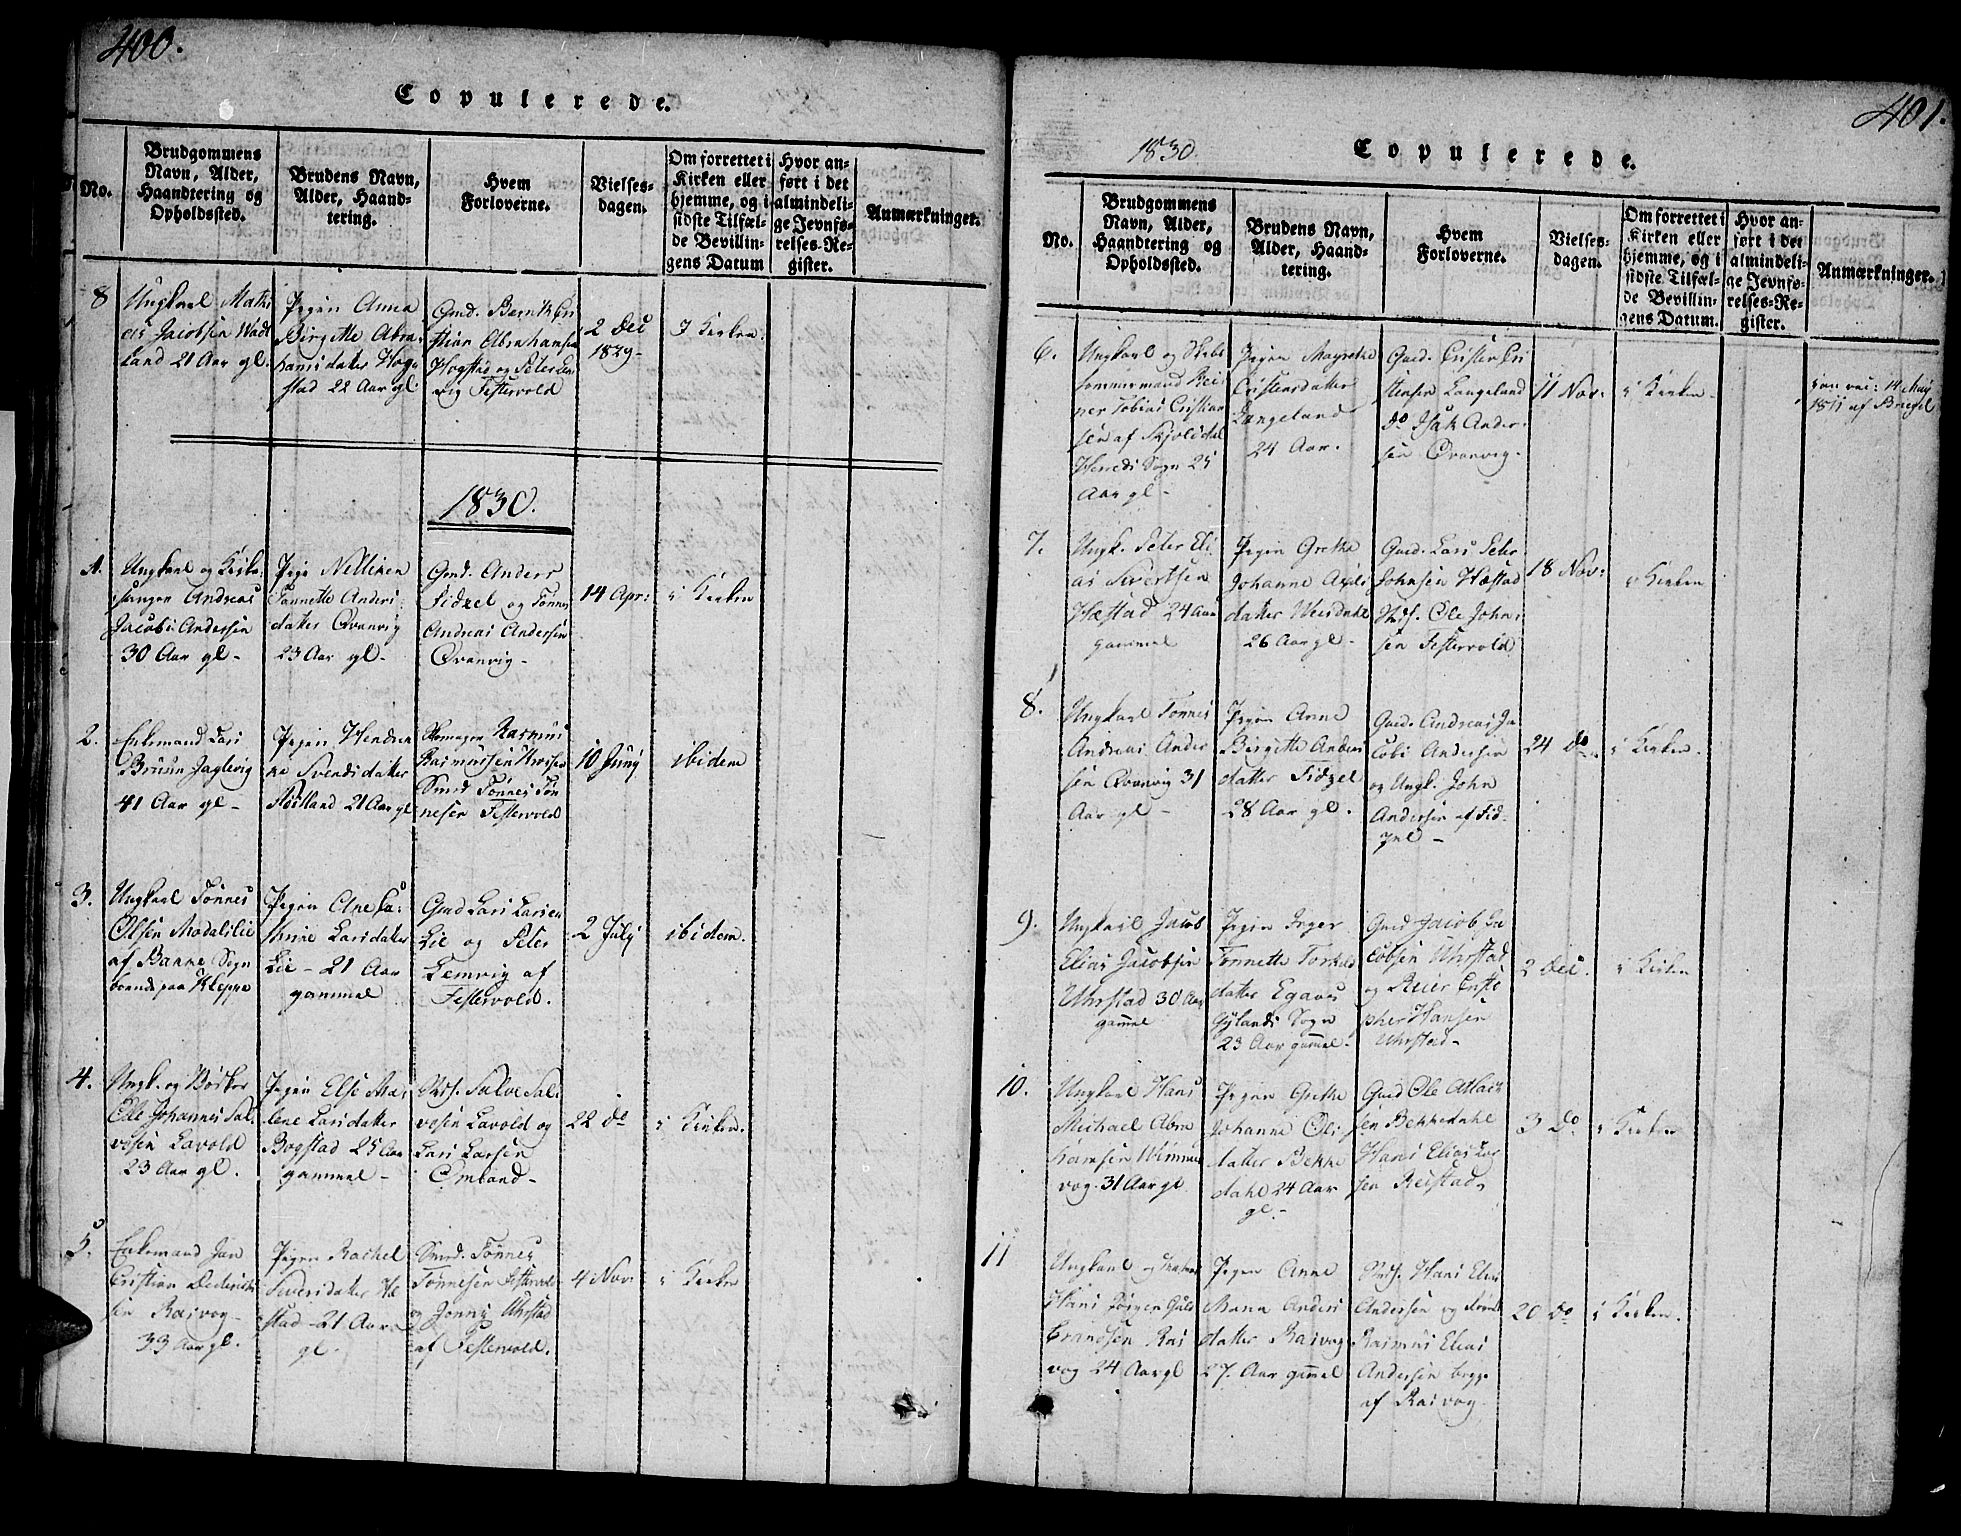 400.
Copulerede.
No.
Brudgommens
Navn, Alder,
Haandtering og
Opholdssted.
Brudens Navn,
Alder, Haand-
tering.
Hvem
Forloverne.
Vielses-
dagen.
Om forrettet i
Kirken eller
hjemme, og i
sidste Tilfæl-
de Bevillin-
gens Datum
Hvor an-
ført i det
almindeli-
ge Jevnfø-
relses-Re-
gister.
Anmærkninger.
8
Ungkarl Mathi
as Jacobsen Wad
land 21 Aar gl.
Pigen Anna
Birgitte Abra-
hamsdater Hog-
stad 22 Aar gl.
Gmd. Bernt Cri
stian Abrahamsen
Hogstad og Peter
vig Festervold
2 Dec
1829-
I Kirken.
1830.
1.
Ungkarl og Kirke-
sanger Andreas
Jacobi Andersen
30 Aar gl-
Pige Nelliken
Tonnette Anders
datter Qvanvig
23 Aar gl-
Gmd. Anders
Fidzel og Tønnes
Andreas Andersen
Qvanvig-
14 Apr:
i Kirken
2.
Enkemand Lars
Bruun Jaglevig
41 Aar gl-
Pigen Hendri
ke Svendsdater
21 Aar gl
Rasmus
Rasmussen
Smd Tønnes Tøn
nesen Festervold
10 Juny
ibidem
3.
Ungkarl Tønnes
Olsen Modalslie
af Banne Sogn
boende paa Kleppe
Pigen Ane Ca-
thrine Larsdater
Lie - 21 Aar
gammel
Gmd Lars Larsen
Lie og Peter
Lemvig af
Festervold.
2 July
ibidem.
4.
Ungk. og Bødker
Ole Johannes Sal
vesen Lavold
23 Aar gl.
Pigen Else Ma-
lene Larsdater
Bogstad 25 Aar
gammel-
Salve Sal-
vesen Lavold og
Lars Larsen
Omland-
22 do
i Kirken.
5.
Enkemand Jan
Cristian Dederich
sen Rasvog-
33 Aar gl.
Pigen Rachel
Siversdater Hæ
stad -21 Aar
gl.
Smd. Tønnes
Tønnesen Festervold
og Jonny Uhrstad
af Festervold.
4 Nov.
i Kirken
401.
1830.
Copulerede.
No.
Brudgommens
Navn, Alder,
Haandtering og
Opholdssted.
Brudens Navn,
Alder, Haand-
tering.
Hvem
Forloverne.
Vielses-
dagen.
Om forrettet i
Kirken eller
hjemme, og i
sidste Tilfæl-
de Bevillin-
gens Datum.
Hvor an-
ført i det
almindeli-
ge Jevnfø-
relses-Re-
gister.
Anmærkninger.
6.
Ungkarl og Skibs
tømmermand Rei
ner Tobias Cristian
sen af Skjoldidal
Herreds Sogn 25
Aar gl-
Pigen Magrethe
Cristensdatter
Langeland
24 Aar.
Gmd. Crister Cri
stensen Langeland
do Isak Ander-
sen Qvanvig-
11 Nov:
i Kirken-
vac: 14 May
1811 af
7.
Ungk. Peter Eli
as Sivertsen
Hæstad 24 Aar
gammel
Pigen Grethe
Johanne Axels
datter Weisdahl
26 Aar gl-
Gmd. Lars Peter
Johnsen Hæstad
Ole John-
sen Festervold
18 Nov:
i Kirken
8.
Ungkarl Tønnes
Andreas Ander
sen Qvanvig 31
Aar gl-
Pigen Anne
Birgitte Anders
datter Fidzel
28 Aar gl.
Gmd. Andreas Ja
cobi Andersen
og Ungk. John
Andersen af Fid-
zel-
24 do.
i Kirken.
9.
Ungkarl Jacob
Elias Jacobsen
Uhrstad 30 Aar
gammel
Pigen Inger
Tonnette Torkild
datter Egaaes
Gylands Sogn
23 Aar gammel-
Gmd Jacob Ja
cobsen Uhrstad
og Reier Criste
pher Hansen
Uhrstad-
2 Dec.
i Kirken
10.
Ungkarl Hans
Michael Abra
hamsen Wimme
vog. 31 Aar gl
Pigen Grethe
Johanne Ols
datter Bekke
dahl 24 Aar
gl.-
Gmd Ole Atlack
sen Bekkedahl
Hans Elias Lar
sen Reistad
3 do
i Kirken
11
Ungkarl og
Hans Jørgen Guld
brandsen Ras
vog 24 Aar gl
Pigen Anne
Maria Anders
datter Rasvog
27. Aar gammel
Hans Elias
Andersen og
Rasmus Elias
Andersen begge
af Rasvog
20 do
i Kirken.